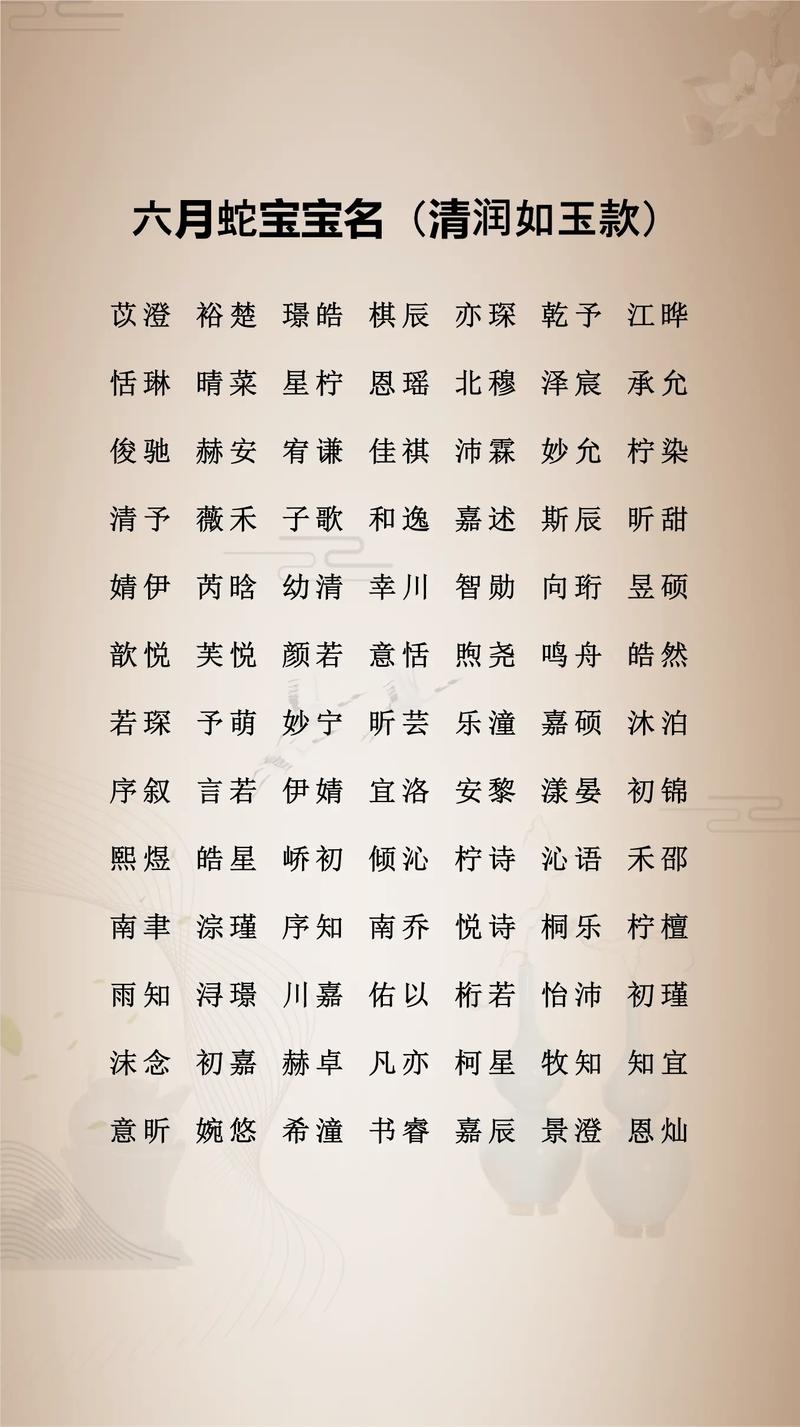 六月蛇宝宝名（清润如玉款）
苡澄 裕楚 璟皓 棋辰 亦琛 乾予 江晔
恬琳 晴菜 星柠 恩瑶 北穆 泽宸 承允
俊驰 赫安 宥谦 佳祺 沛霖 妙允 柠染
清予 薇禾 子歌 和逸 嘉述 斯辰 昕甜
婧伊 芮晗 幼清 幸川 智勋 向珩 昱硕
歆悦 芙悦 颜若 意恬 煦尧 鸣舟 皓然
若琛 予萌 妙宁 昕芸 乐潼 嘉硕 沐泊
序叙 言若 伊婧 宜洛 安黎 漾晏 初锦
熙煜 皓星 峤初 倾沁 柠诗 沁语 禾邵
南聿 淙瑾 序知 南乔 悦诗 桐乐 柠檀
雨知 浔璟 川嘉 佑以 桁若 怡沛 初瑾
沫念 初嘉 赫卓 凡亦 柯星 牧知 知宜
意昕 婉悠 希潼 书睿 嘉辰 景澄 恩灿